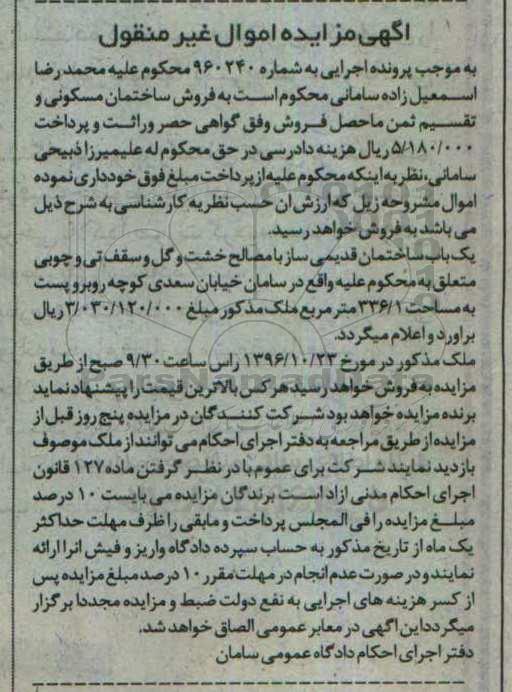 آگهی مزایده اموال غیر منقول
به موجب پرونده اجرایی به شماره ۹۶۰۲۴۰ محکوم علیه محمدرضا
اسمعیل زاده سامانی محکوم است به فروش ساختمان مسکونی و
تقسیم ثمن ماحصل فروش وفق گواهی حصر وراثت و پرداخت
۵/۱۸۰/۰۰۰ ریال هزینه دادرسی در حق محکوم له علیمیرزا ذبیحی
سامانی، نظر به اینکه محکوم علیه از پرداخت مبلغ فوق خودداری نموده
اموال مشروحه زیل که ارزش ان حسب نظریه کارشناسی به شرح ذیل
می باشد به فروش خواهد رسید.
یک باب ساختمان قدیمی ساز با مصالح خشت و گل و سقف تی و چوبی
متعلق به محکوم علیه واقع در سامان خیابان سعدی کوچه روبرو پست
به مساحت ۳۳۶/۱ متر مربع ملک مذکور مبلغ ۳/۰۳۰/۱۲۰/۰۰۰ ریال
براورد و اعلام میگردد.
ملک مذکور در مورخ ۱۳۹۶/۱۰/۲۳ راس ساعت ۹/۳۰ صبح از طریق
مزایده به فروش خواهد رسید هر کس بالاترین قیمت را پیشنهاد نماید
برنده مزایده خواهد بود شرکت کنندگان در مزایده پنج روز قبل از
مزایده از طریق مراجعه به دفتر اجرای احکام می توانند از ملک موصوف
بازدید نمایند شرکت برای عموم با در نظر گرفتن ماده ۱۲۷ قانون
اجرای احکام مدنی ازاد است برندگان مزایده می بایست ۱۰ درصد
مبلغ مزایده را فی المجلس پرداخت و مابقی را ظرف مهلت حداکثر
یک ماه از تاریخ مذکور به حساب سپرده دادگاه واریز و فیش انرا ارائه
نمایند و در صورت عدم انجام در مهلت مقرر ۱۰ درصد مبلغ مزایده پس
از کسر هزینه های اجرایی به نفع دولت ضبط و مزایده مجددا برگزار
میگردد این اگهی در معابر عمومی الصاق خواهد شد.
دفتر اجرای احکام دادگاه عمومی سامان
ParsNamadData